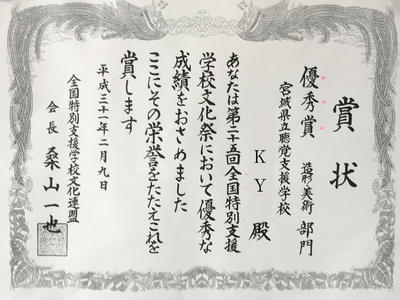 賞状
優秀賞 造形・美術 部門
宮城県立聴覚支援学校
KY 殿
あなたは第二十五回全国特別支援
学校文化祭において優秀な
成績をおさめました
ここにその栄誉をたたえこれを
賞します
平成三十一年二月九日
全国特別支援学校文化連盟
会長 桑山一也